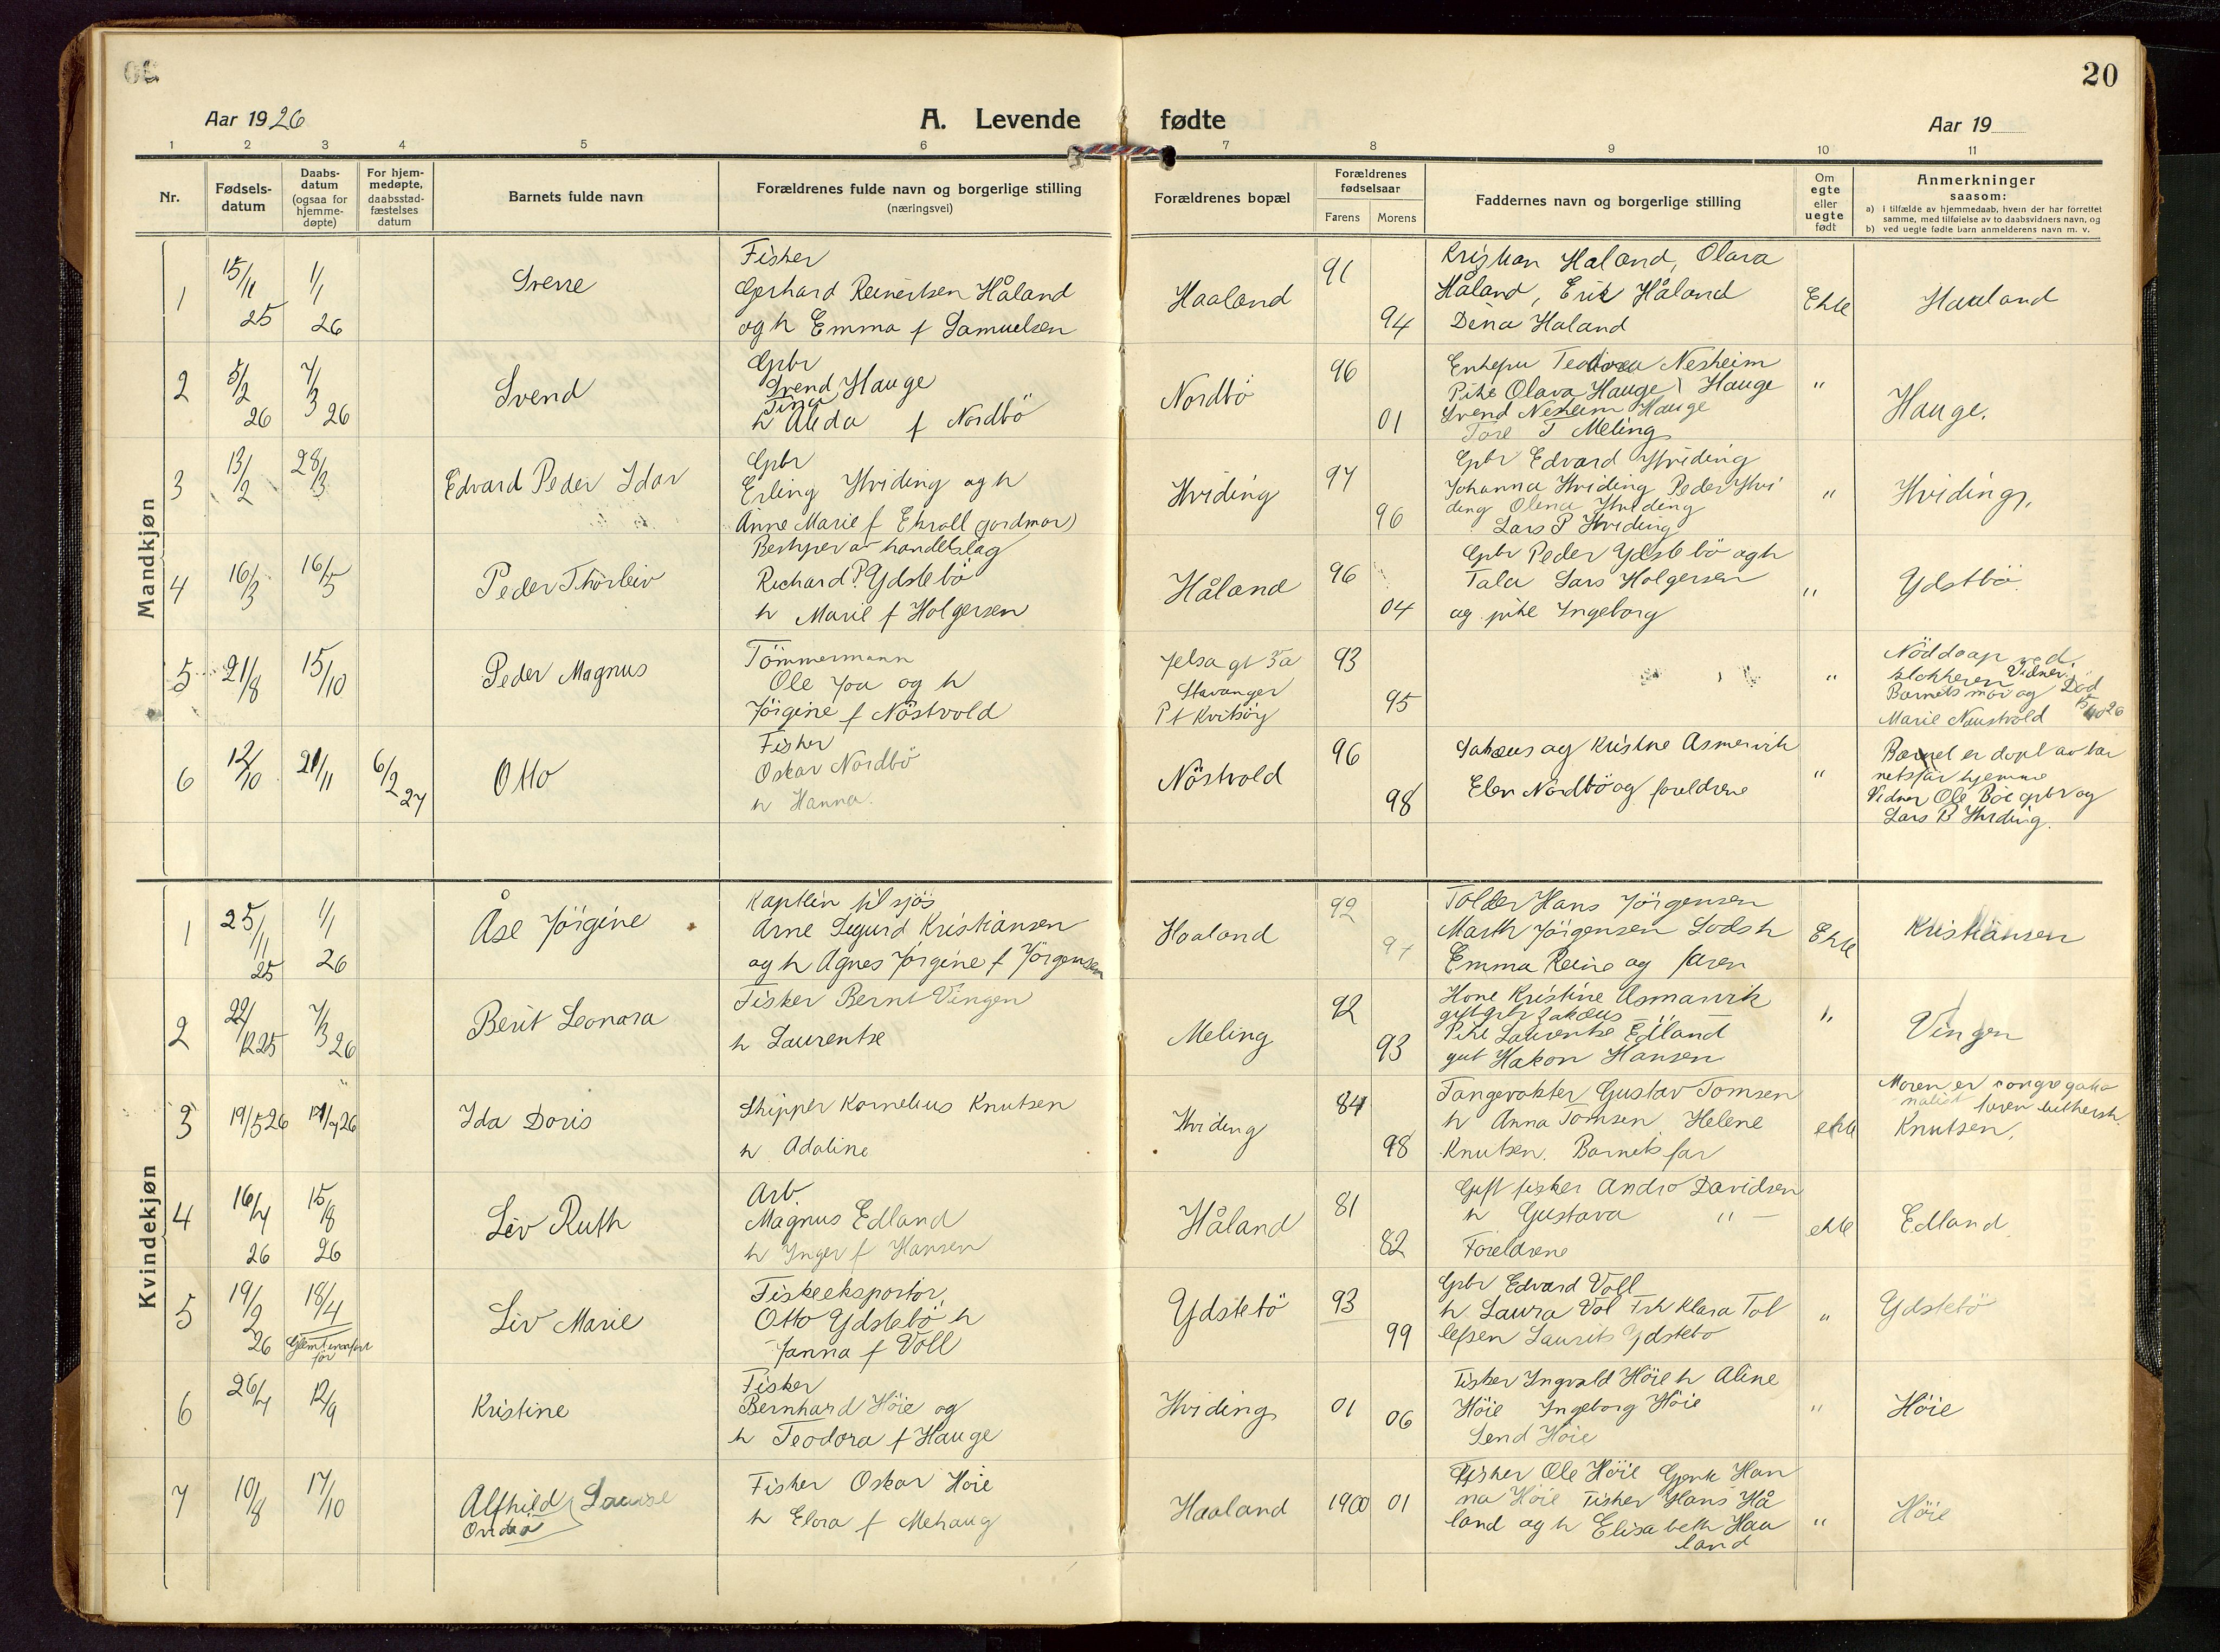 20
Aar 1926
A. Levende fødte
Aar 19
1 2 3 4 5 6 7 8 9 10 11
Nr.
Fødsels-
datum
Daabs-
datum
(ogsaa for
hjemme-
døpte)
For hjem-
medøpte,
daabsstad-
fæstelses
datum
Barnets fulde navn
Forældrenes fulde navn og borgerlige stilling
(næringsvei)
Forældrenes bopæl
Forældrenes
fødselsaar
Farens Morens
Faddernes navn og borgerlige stilling
Om
egte
eller
uegte
født
Anmerkninger
saasom:
a) i tilfælde av hjemmedaab, hvem der har forrettet
samme, med tilføielse av to daabsvidners navn, og
b) ved uegte fødte barn anmelderens navn m. v.
Mandkjøn
1
15/11
25
1/1
26
Sverre
Fisker
Gerhard Reinertsen Håland
og h Emma f Samuelsen
Haaland
91
94
Kristian Haland, Olava
Håland, Erik Håland
Dina Haland
Ekte
Haaland
2
5/2
26
7/3 26
Svend
Gpbr
Svend Hauge
Tina
h Alida f Nordbö
Nordbö
96
01
Enkepu Teodora Nesheim
Pike Olava Hauge Hauge
Svend Nesheim Hauge
Tore T Meling
"
Hauge.
3
13/2
28/3
Edvard Peder Idar
Gpbr
Erling Hviding og h
Anne Marie f Ekroll (jordmor)
Hviding
97
96
Gpbr Edvard Hviding
Johanna Hviding Peder Hvi
ding Olena Hviding
Lars P Hviding
"
Hviding.
4
16/3
16/5
Peder Thorleiv
Bestyrer av handelslag
Richard P. Ydstebö
h Marie f Holgersen
Håland
96
04
Gpbr Peder Ydstebö og h
Tala Lars Holgersen
og pike Ingeborg
"
Ydstbö.
5
21/8
15/10
Peder Magnus
Tömmermann
Ole Joa og h
Jörgine f Nöstvold
Jelsa gt 5a
Stavanger
Pt Kvitsöy
93
95
"
Nöddaap ved
klokkeren Vidner:
Barnets mor og Död
Marie Naustvold 15/10 26
6
12/10
21/11
6/2 27
Otto
Fisker
Oskar Nordbö
h Hanna.
Nöstvold
96
98
Sakæus og Kristine Asmervik
Elen Nordbö og foreldrene
"
Barnet er döpt av bar
nets far hjemme
Vidner Ole Böe gpbr og
Lars B Hviding.
Kvindekjøn
1
25/11
25
1/1
26
Åse Jörgine
Kaptein til sjös
Arne Sigurd Kristiansen
og h Agnes Jörgine f Jörgensen
Haaland
92
97
Tolder Hans Jörgensen
Marth Jörgensen Lods h
Emma Reine og faren
Ekte
Kristiansen
2
22/12 25
7/3 26
Berit Leonora
Fisker Bernt Vingen
h Laurentse
Meling
92
93
Kone Kristine Asmarvik
Pike Laurentse Edland
gut Hakon Hansen
"
Vingen
3
19/5 26
26
Ida Doris
Skipper Kornelius Knutsen
h Adaline
Hviding
84
98
Tangevakter Gustav Tomsen
h Anna Tomsen Helene
Knutsen. Barnets far
ekte
Moren er congregatio
nalist faren luthersk.
Knutsen.
4
16/7
26
15/8
26
Liv Ruth
Arb.
Magnus Edland
h Inger f Hansen
Håland
81
82
Gift fisker Andro Davidsen
h Gustava " —
Foreldrene
ekte
Edland
5
19/2
26
18/4
Liv Marie
Fiskeeksportör
Otto Ydstebö h
Janna f Voll
Ydstebö
93
99
Gpbr Edvard Voll
h Laura Vol Frk Klara Tol
lefsen Laurits Ydstebö
"
Ydstebö
6
26/7
12/9
Kristine
Fisker
Bernhard Höie og
h Teodora f Hauge
Hviding
01
06
Fisker Ingvald Höie h Aline
Höie Ingeborg Höie
Send Höie
"
Höie
7
10/8
17/10
Alfhild Louise
Ovidia
Fisker Oskar Höie
h Elora f Mehaug
Haaland
1900
01
Fisker Ole Höie Genk Han
na Höie Fisker Hans Hå
land og h Elisabeth Haa
land
"
Höie